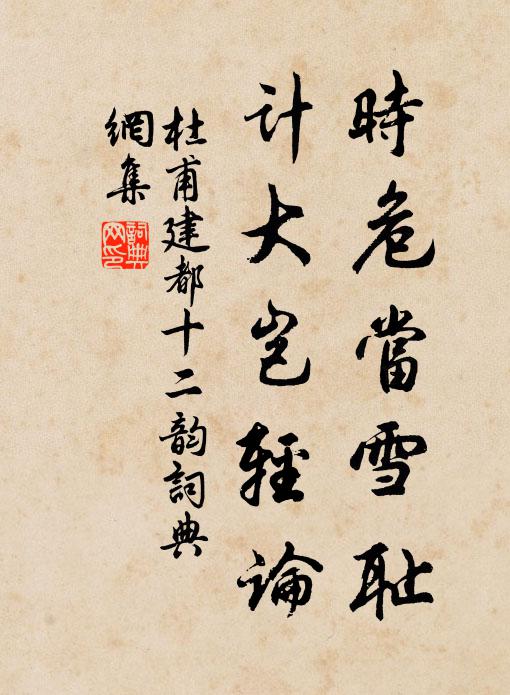 時危當雪耻
計大豈輕論
杜甫建都十二韵詞典
網集
詞典
网印